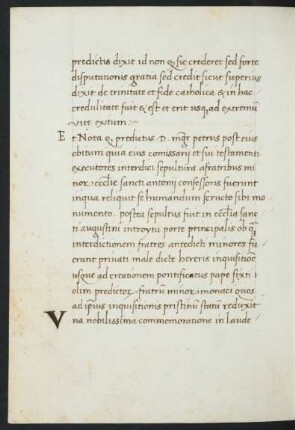 predictis dixit id non q̃ sic crederet sed forte
disputationis gratia sed credit sicut superius
dixit de trinitate et fide catholica & in hac
credulitate fuit & est et erit usq, ad extremũ
vitę exitum
Et Nota q̃ predictus . D . mgr̃ petrus post eius
obitum quia eius comissarij et sui testamenti
executores interdici sepultura afratribus mi
nor̃ eccliẽ sancti antonij confessoris fuerunt
inqua reliquit se humandum scructo sibi mo
numento . postea sepultus fuit in eccl̃ia sanc
ti augustini introytu porte principalis ob q̃
interdictionem fratres antedicti minores fu
erunt privati male dicte heresis inquisitiõe
usque ad creationem pontificatus pape sixti
olim predictor̃ fratrũ minor̃ monaci quos
ad ipsius inquisitionis pristinũ statũ reduxit
Vna nobilissima commemoratione in laude